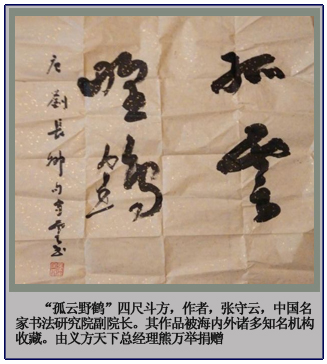 孤云
野鹤
唐刘长卿句守云书
“孤云野鹤”四尺斗方，作者，张守云，中国名
家书法研究院副院长。其作品被海内外诸多知名机构
收藏。由义方天下总经理熊万举捐赠